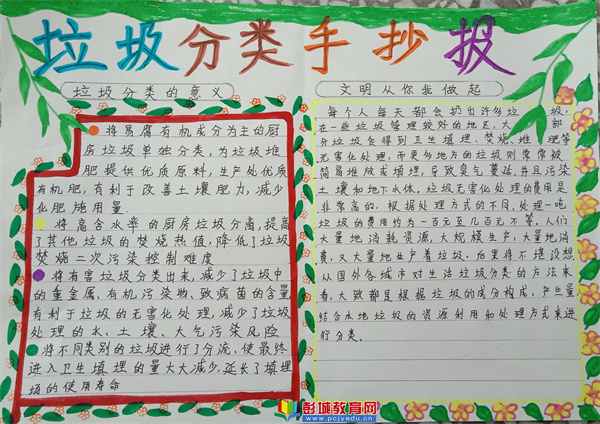 垃圾分类手抄报
垃圾分类的意义
将易腐有机成分为主的厨
房垃圾单独分类,为垃圾堆
肥提供优质原料,生产处优质
有机肥,有利于改善土壤肥力,减少
化肥施用量.
将高含水率的厨房垃圾分离,提高
了其他垃圾的焚烧热值,降低了垃圾
焚烧二次污染控制难度
将有害垃圾分类出来,减少了垃圾中
的重金属、有机污染物、致病菌的含量,
有利于垃圾的无害化处理,减少了垃圾
处理的水、土壤、大气污染风险
将不同类别的垃圾进行了分流、使最终
进入卫生填埋的量大大减少,延长了填埋
场的使用寿命
文明从你我做起
每个人每天都会扔出许多垃圾,
在一些垃圾管理较好的地区,大部
分垃圾会得到卫生填埋、焚烧、堆肥等
无害化处理,而更多地方的垃圾则常常被
简易堆放或填埋,导致臭气蔓延,并且污染
土壤和地下水体.垃圾无害化处理的费用是
非常高的,根据处理方式的不同,处理一吨
垃圾的费用约为一百元至几百元不等.人们
大量地消耗资源,大规模生产,大量地消
费,又大量地生产着垃圾.后果将不堪设想
从国外各城市对生活垃圾分类的方法来
看,大致都是根据垃圾的成分构成、产生量
结合本地垃圾的资源利用和处理方式来进
行分类.
彭城教育网
www.pcjyedu.cn